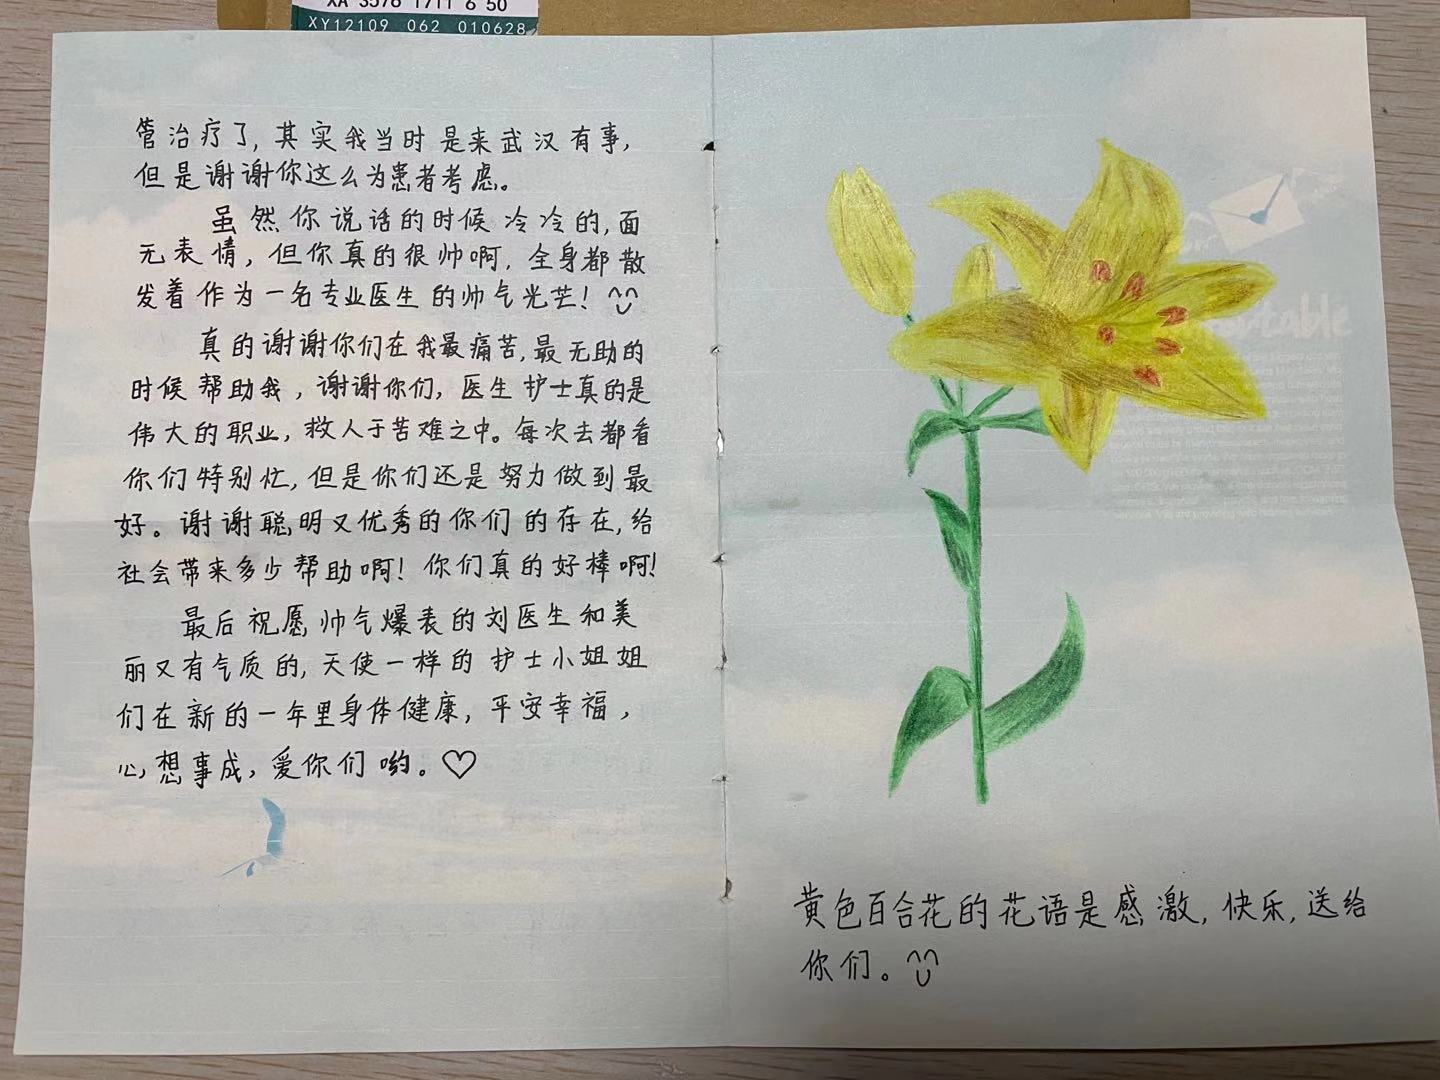 XA 3576 1711 6 50
XY12109 062 010628
管治疗了,其实我当时是来武汉有事,
但是谢谢你这么为患者考虑。
虽然你说话的时候冷冷的,面
无表情,但你真的很帅啊,全身都散
发着作为一名专业医生的帅气光芒!
真的谢谢你们在我最痛苦,最无助的
时候帮助我,谢谢你们,医生护士真的是
伟大的职业,救人于苦难之中。每次去都看
你们特别忙,但是你们还是努力做到最
好。谢谢聪明又优秀的你们的存在,给
社会带来多少帮助啊!你们真的好棒啊!
最后祝愿帅气爆表的刘医生和美
丽又有气质的,天使一样的护士小姐姐
们在新的一年里身体健康,平安幸福,
心想事成,爱你们哟。♡
黄色百合花的花语是感激,快乐,送给
你们。